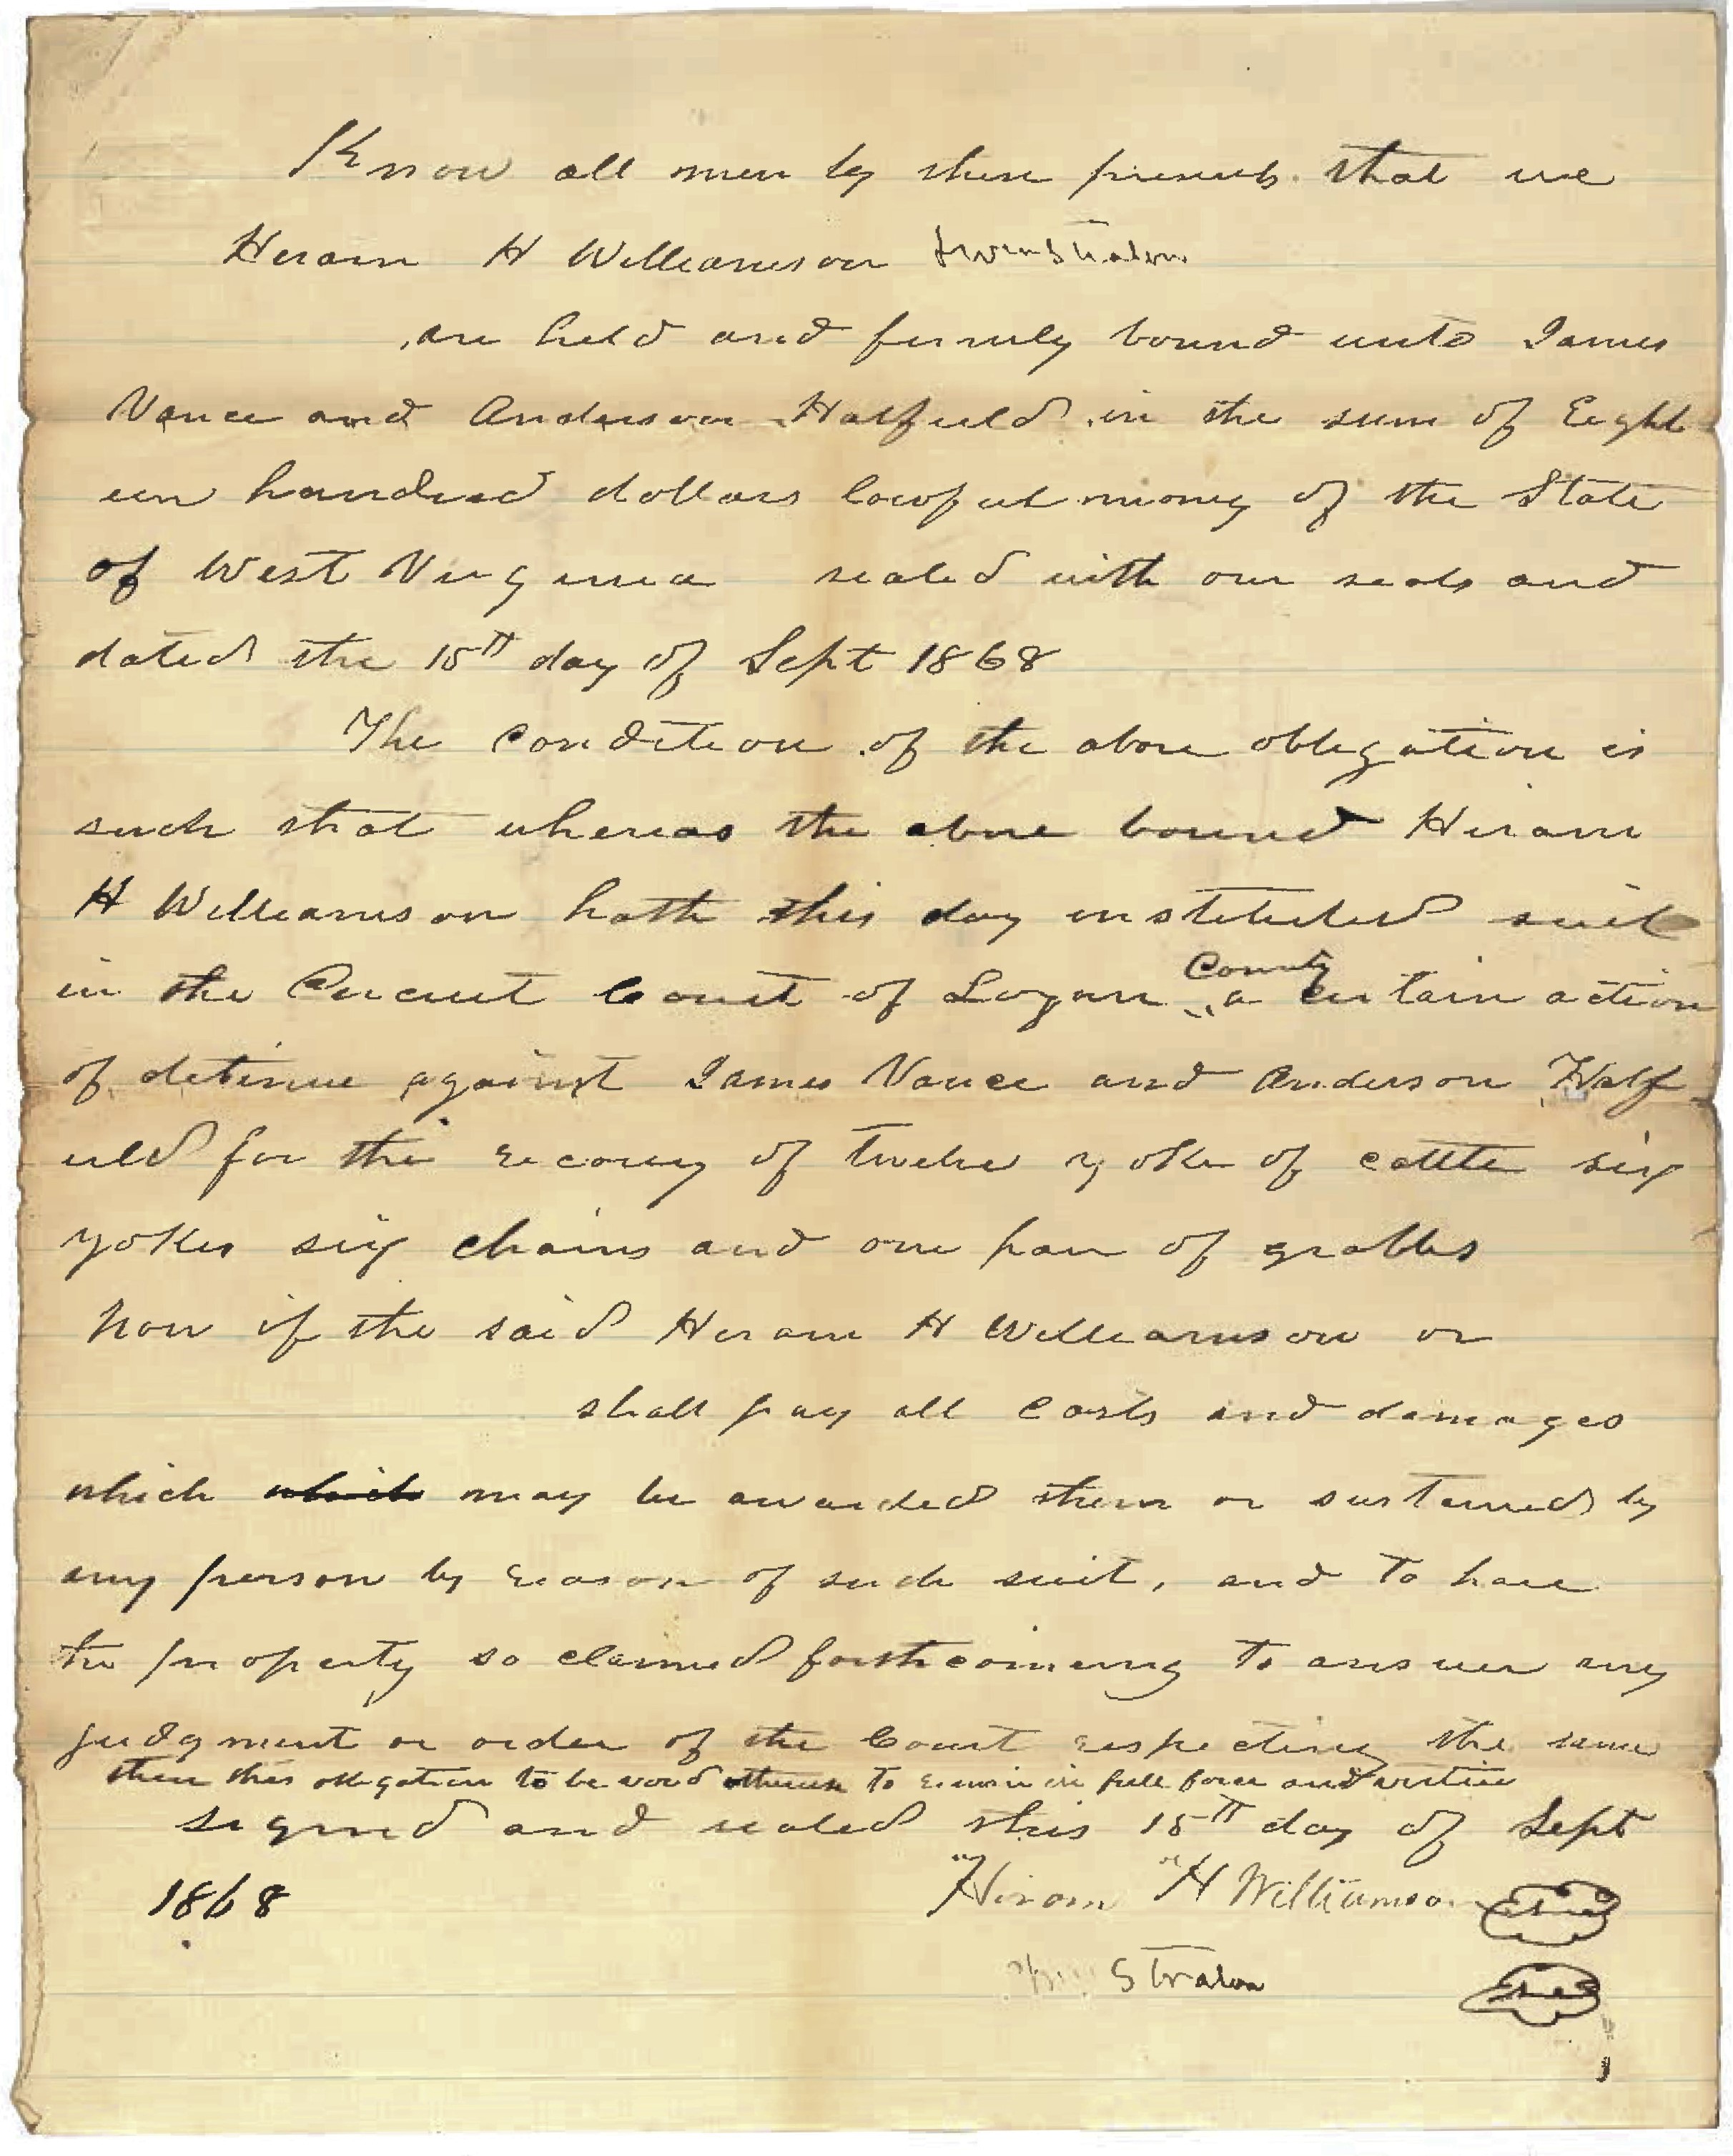 Know all men by these presents that we
Hiram H Williamson
are held and firmly bound unto James
Vance and Anderson Hatfield in the sum of Eight
een hundred dollars lawful money of the State
of West Virginia sealed with our seals and
dated the 15th day of Sept 1868
The Condition of the above obligation is
such that whereas the above bound Hiram
H Williamson hath this day instituted suit
in the Circuit Court of Logan County a certain action
of detinue against James Vance and Anderson Hatf
ield for the recovery of twelve yoke of cattle six
yokes six chains and one pair of grabbs
Now if the said Hiram H Williamson or
shall pay all costs and damages
which which may be awarded them or sustained by
any person by reason of such suit, and to have
the property so claimed forthcoming to answer any
judgment or order of the Court respecting the same
then this obligation to be void otherwise to remain in full force and virtue
signed and sealed this 15th day of Sept
1868 Hiram H Williamson Seal
Straton Seal